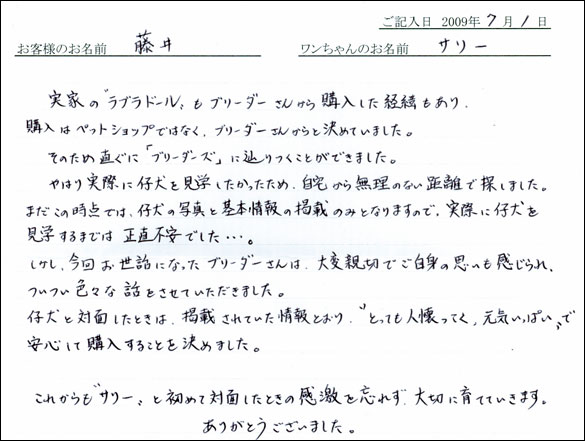 ご記入日 2009年 7月 1日
お客様のお名前 藤井 ワンちゃんのお名前 サリー
実家の"ラブラドール"もブリーダーさんから購入した経緯もあり、
購入はペットショップではなく、ブリーダーさんからと決めていました。
そのため直ぐに「ブリーダーズ」に辿りつくことができました。
やはり実際に仔犬を見学したかったため、自宅から無理のない距離で探しました。
まだこの時点では、仔犬の写真と基本情報の掲載のみとなりますので、実際に仔犬を
見学するまでは 正直不安でした・・・。
しかし、今回お世話になったブリーダーさんは、大変親切でご自身の思いも感じられ、
ついつい色々な話をさせていただきました。
仔犬と対面したときは、掲載されていた情報とおり、"とっても人懐ってく、元気いっぱい"で
安心して購入することを決めました。
これからも"サリー"と初めて対面したときの感激を忘れず、大切に育てていきます。
ありがとうございました。